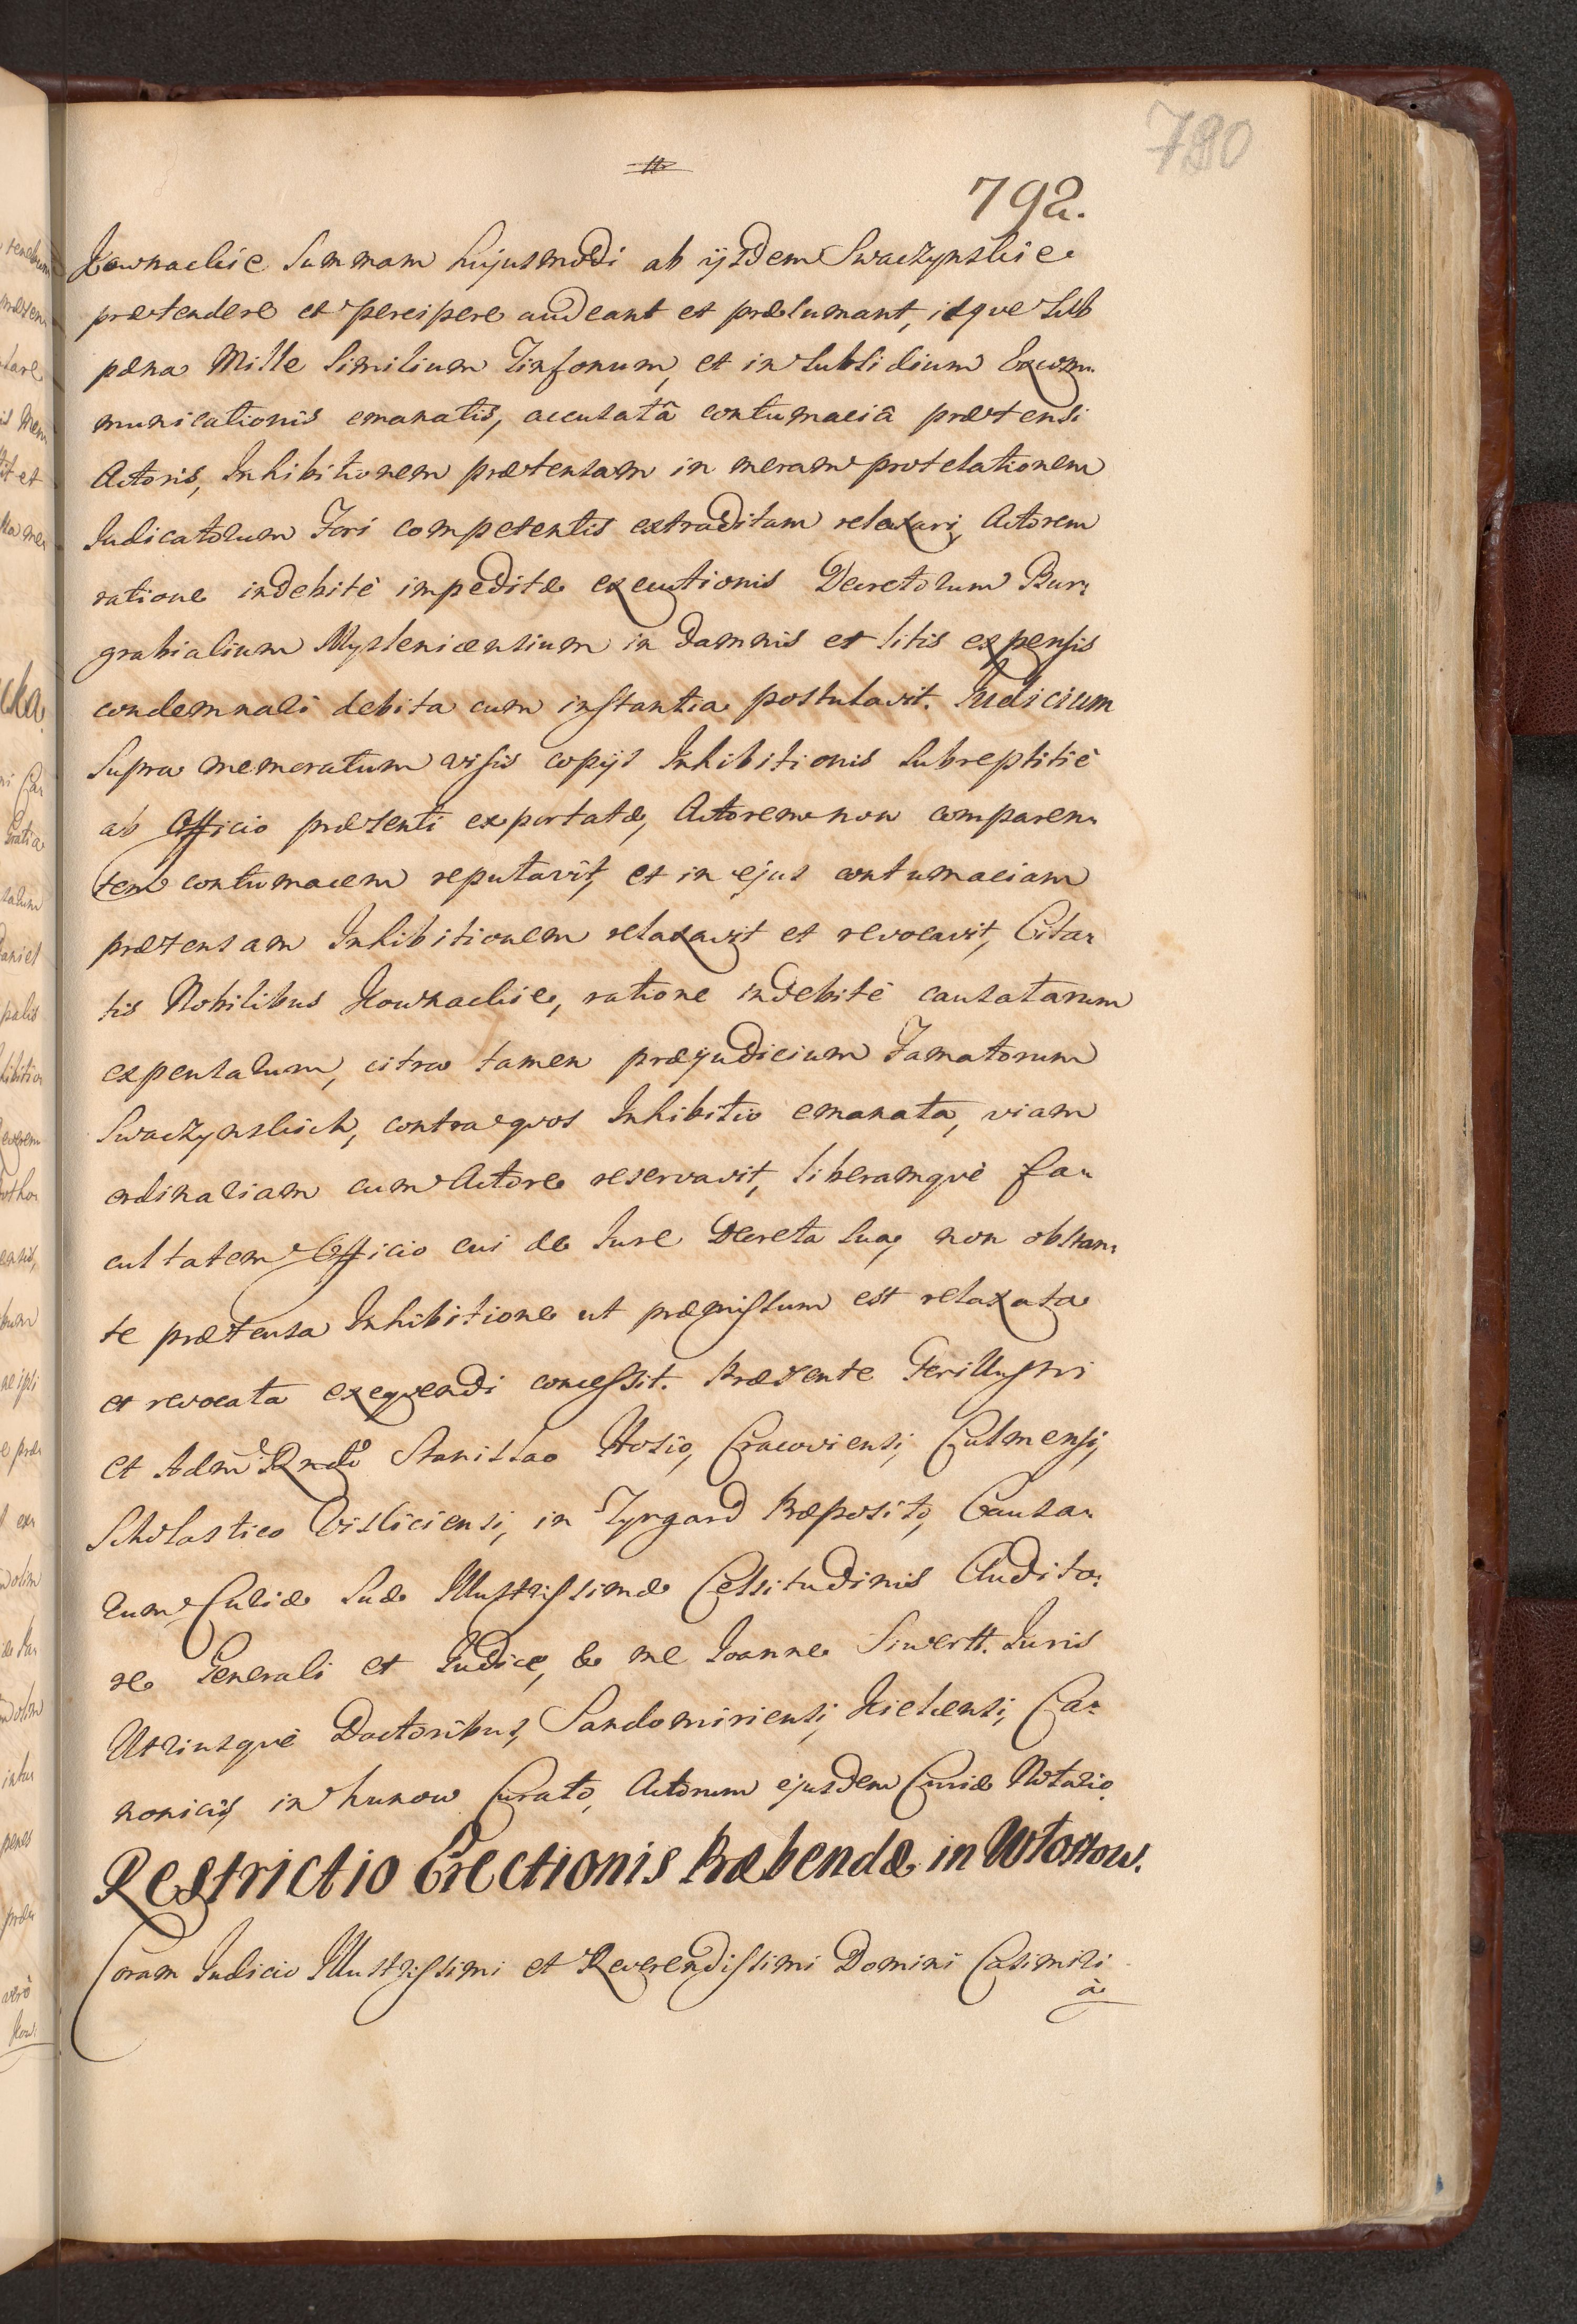 780
792.
Kownackie Summam hujusmodi ab ijsdem Swaczynskie
prætendere et percipere audeant et præsumant, idque sub
pæna Mille similium Tinfonum, et in subsidium Excom-
municationis emanatis, accusatâ contumaciâ prætensi
Actoris, Inhibitionem prætensam in meram protelationem
Iudicatorum Fori competentis extraditam relaxari, Actorem
ratione indebitè impeditæ executionis Decretorum Bur-
grabialium Myslenicensium in damnis et litis expensis
condemnari debita cum instantia postulavit. Iudicium
supra memoratum visis copijs Inhibitionis subreptitiè
ab Officio præsenti exportatæ, Actorem non comparen-
tem contumacem reputavit, et in ejus contumaciam
prætensam Inhibitionem relaxavit et revocavit, Cita-
tis Nobilibus Kownackie, ratione indebitè causatarum
expensarum, citra tamen præjudicium Famatorum
Swaczynskich, contra quos Inhibitio emanata, viam
ordinariam cum Actore reservavit, liberamquè fa-
cultatem Officio cui de Iure Decreta sua, non obstan-
te prætensa Inhibitione ut præmissum est relaxata
et revocata exequendi concessit. Præsente Perillustri
et Adm Rndo Stanislao Hosio, Cracoviensi, Culmensi,
Scholastico Visliciensi, in Zyrgard Præposito, Causa-
rum Curiæ Suæ Illustrissimæ Celsitudinis Audito-
re Generali et Iudice, & me Ioanne Siwertt. Iuris
Utriusquè Doctoribus, Sandomiriensi, Kielcensi, Ca-
nonicis, in Kunow Curato, Actorum ejusdem Curiæ Notario.
Restrictio Erectionis Præbendæ in Wtostow.
Coram Iudicio Illustrissimi et Reverendissimi Domini Casimiri
à